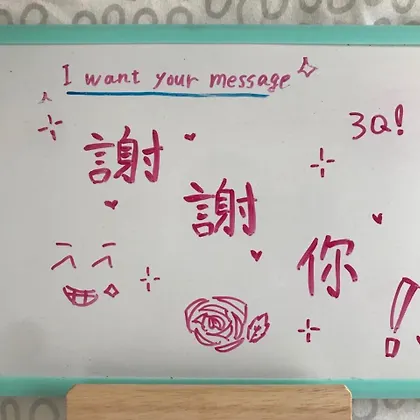 I want your message
3Q!
謝
謝
你
!